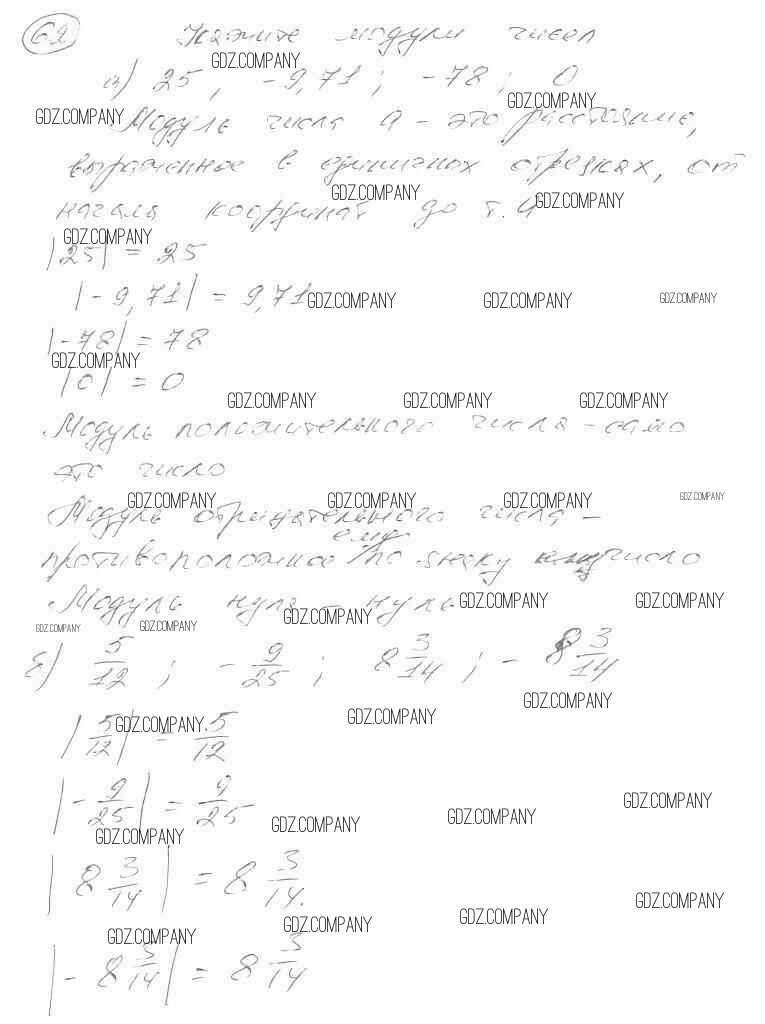 62 Укажите модули чисел
GDZ.COMPANY
а) 25, -9,71; -78; 0
GDZ.COMPANY
GDZ.COMPANY
Модуль числа а - это расстояние,
выраженное в единичных отрезках, от
GDZ.COMPANY GDZ.COMPANY
начала координат до т. а
GDZ.COMPANY
|25| = 25
|-9,71| = 9,71
GDZ.COMPANY GDZ.COMPANY GDZ.COMPANY
|-78| = 78
GDZ.COMPANY
|0| = 0
GDZ.COMPANY GDZ.COMPANY GDZ.COMPANY
Модуль положительного числа - само
это число
GDZ.COMPANY GDZ.COMPANY GDZ.COMPANY GDZ.COMPANY
Модуль отрицательного числа -
ему
противоположное по знаку число
Модуль нуля - нуль
GDZ.COMPANY GDZ.COMPANY GDZ.COMPANY
GDZ.COMPANY GDZ.COMPANY
б) 5/12; -9/25; 8 3/14; -8 3/14
GDZ.COMPANY
|5/12| = 5/12
GDZ.COMPANY GDZ.COMPANY
|-9/25| = 9/25
GDZ.COMPANY GDZ.COMPANY GDZ.COMPANY
GDZ.COMPANY
|8 3/14| = 8 3/14.
GDZ.COMPANY GDZ.COMPANY GDZ.COMPANY
GDZ.COMPANY
|-8 3/14| = 8 3/14